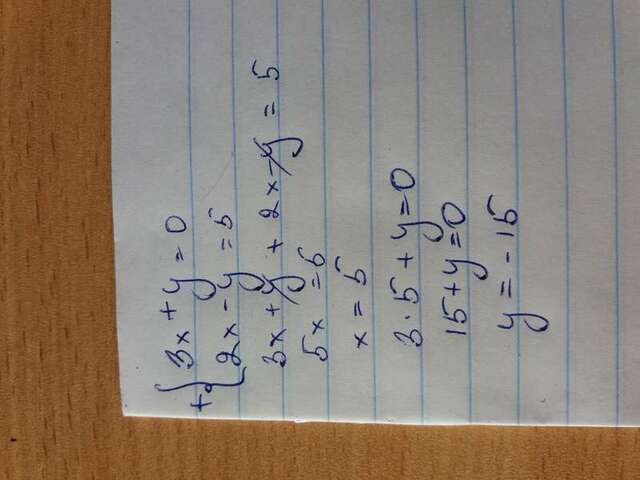 + { 3x + y = 0
2x - y = 5
3x + y + 2x - y = 5
5x = 5
x = 5
3 · 5 + y = 0
15 + y = 0
y = - 15